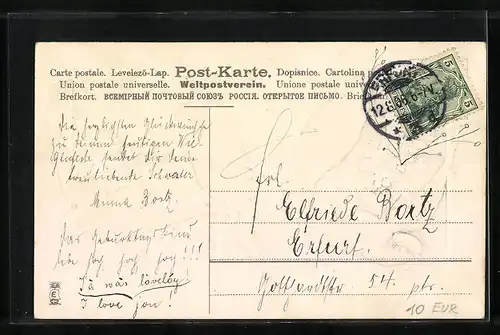 Carte postale. Levelező-Lap. Post-Karte. Dopisnice. Cartolina
Union postale universelle. Weltpostverein. Unione postale
Brefkort. ВСЕМІРНЫЙ ПОЧТОВЫЙ СОЮЗЪ РОССІЯ. ОТКРЫТОЕ ПИСЬМО.
ERFURT
12.8.
5
5
Die herzlichsten Glückwünsche
zu Deinem heutigen Wie-
sendet Dir Deine
Dich liebende
Bortz.
Das Geburtstag
hoch hoch hoch!!!
I love you.
Frl.
Elfriede Bortz
Erfurt.
Gotthardtstr. 54. ptr.
10 EUR